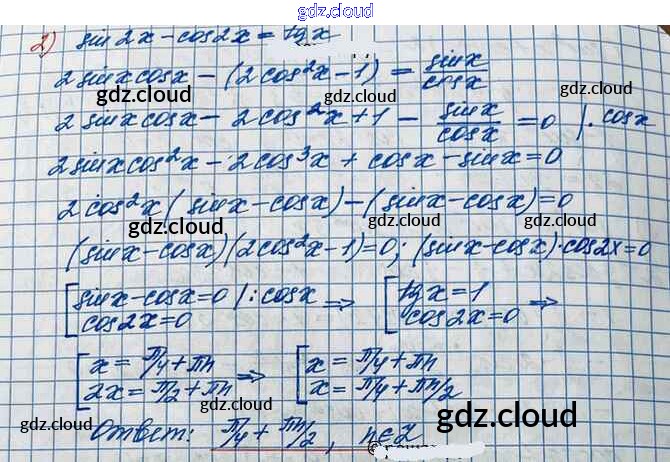 gdz.cloud
2) sin2x - cos2x = tgx
2 sinx cosx - (2cos²x - 1) = sinx/cosx
gdz.cloud gdz.cloud
2 sinx cosx - 2cos²x + 1 - sinx/cosx = 0 | · cosx
gdz.cloud
2 sinx cos²x - 2cos³x + cosx - sinx = 0
2 cos²x (sinx - cosx) - (sinx - cosx) = 0
gdz.cloud gdz.cloud gdz.cloud
(sinx - cosx)(2cos²x - 1) = 0; (sinx - cosx) · cos2x = 0
[ sinx - cosx = 0 | : cosx ⇒ [ tgx = 1 ⇒
cos2x = 0 cos2x = 0
gdz.cloud gdz.cloud
[ x = π/4 + πn ⇒ [ x = π/4 + πn
2x = π/2 + πn x = π/4 + πn/2
gdz.cloud gdz.cloud gdz.cloud
Ответ: π/4 + πn/2, n ∈ Z
gdz.cloud gdz.cloud